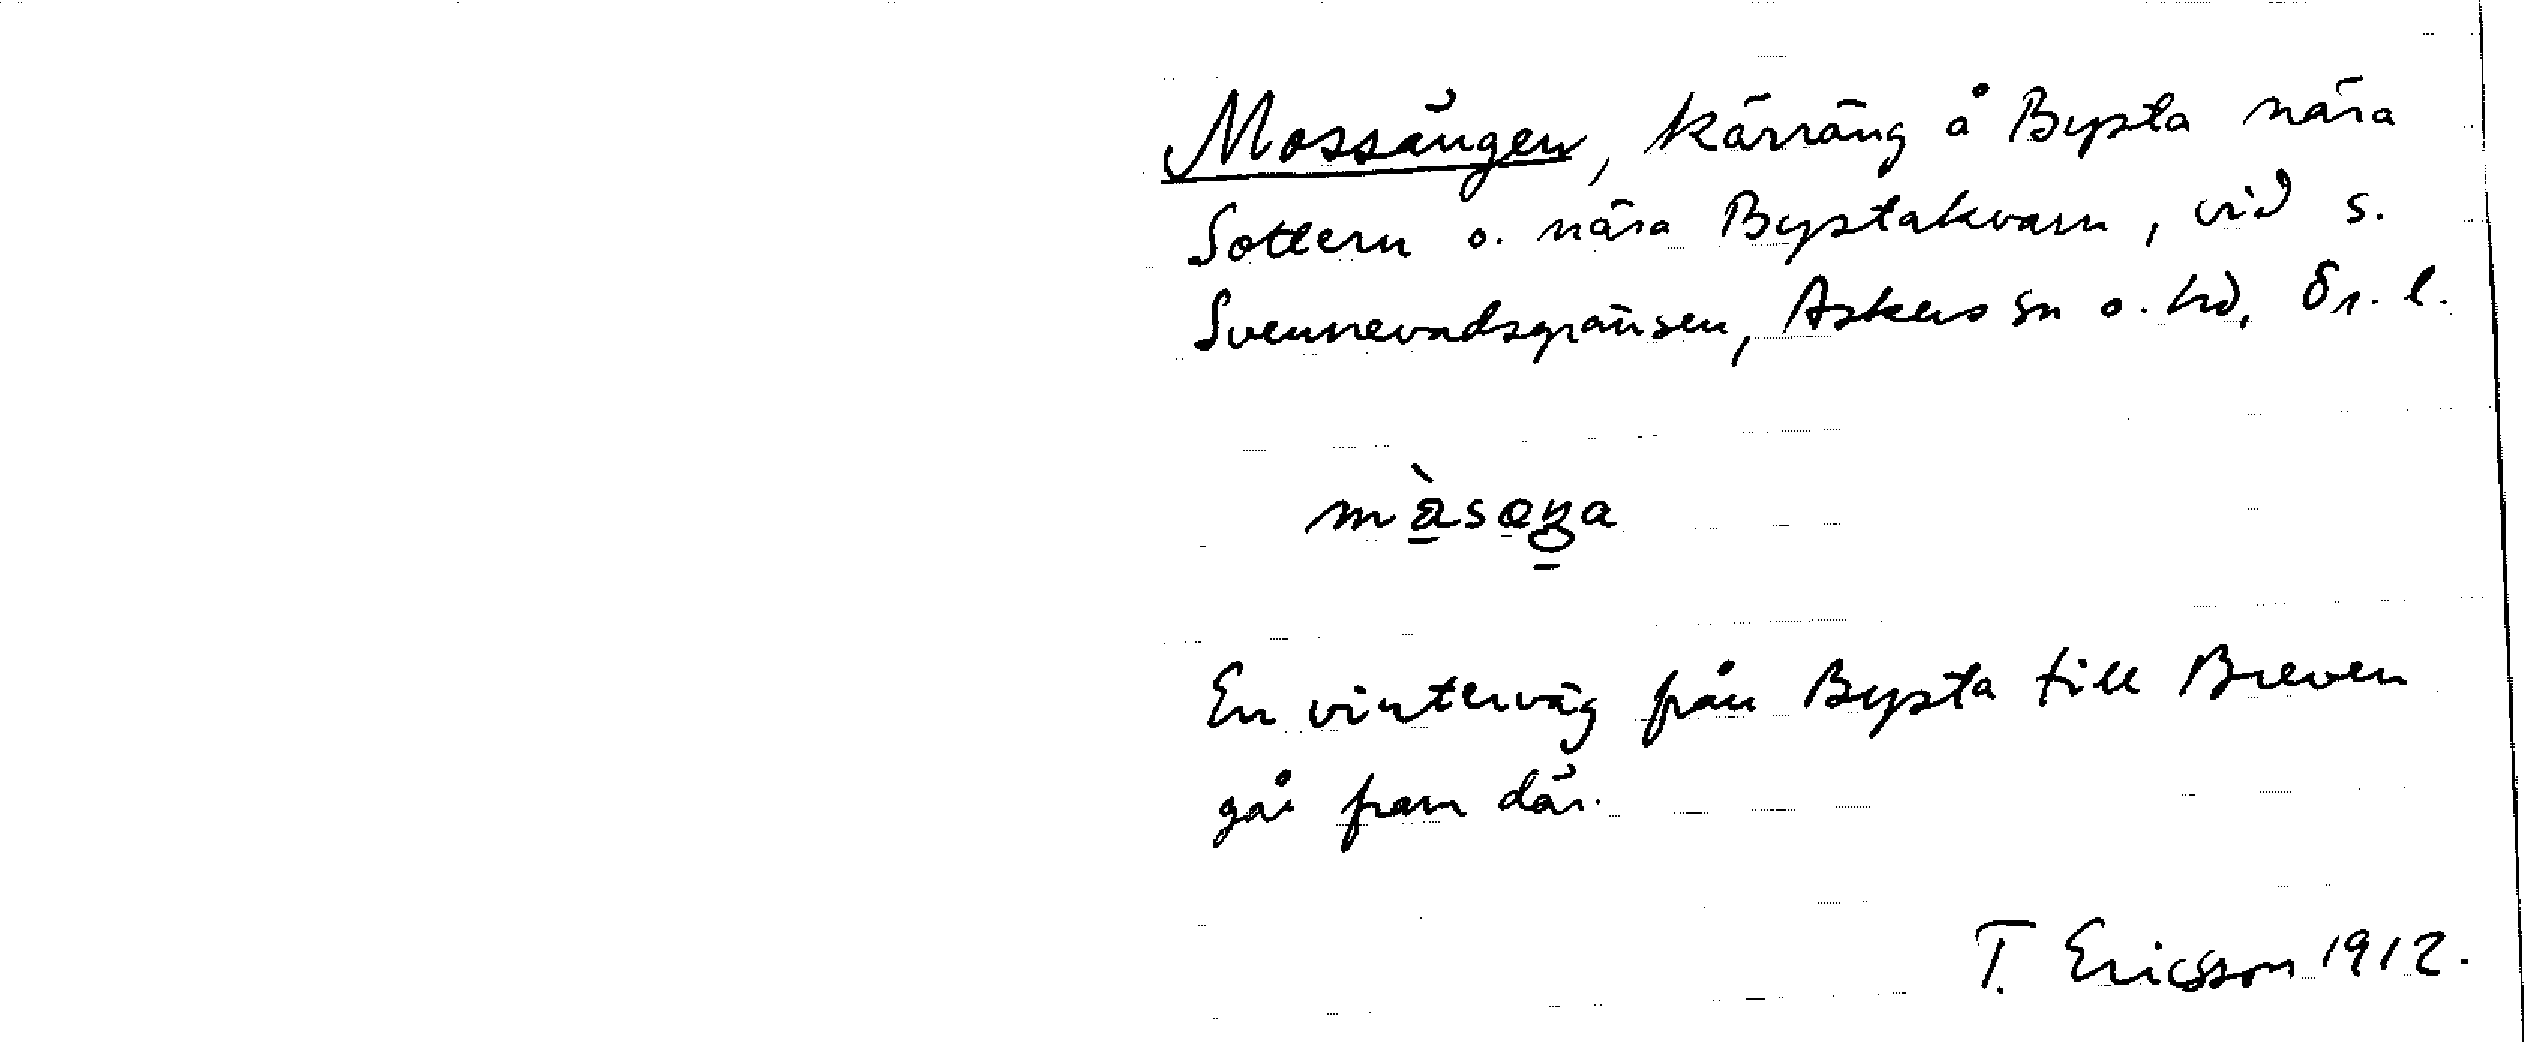 Mossängen, kärräng å Bysta nära
Sottern o. nära Bystakvarn, vid s.
Svennevadsgränsen, Askers sn o. hd, Ör. l.
En vinterväg från Bysta till Breven
går fram där.
T. Ericsson 1912.